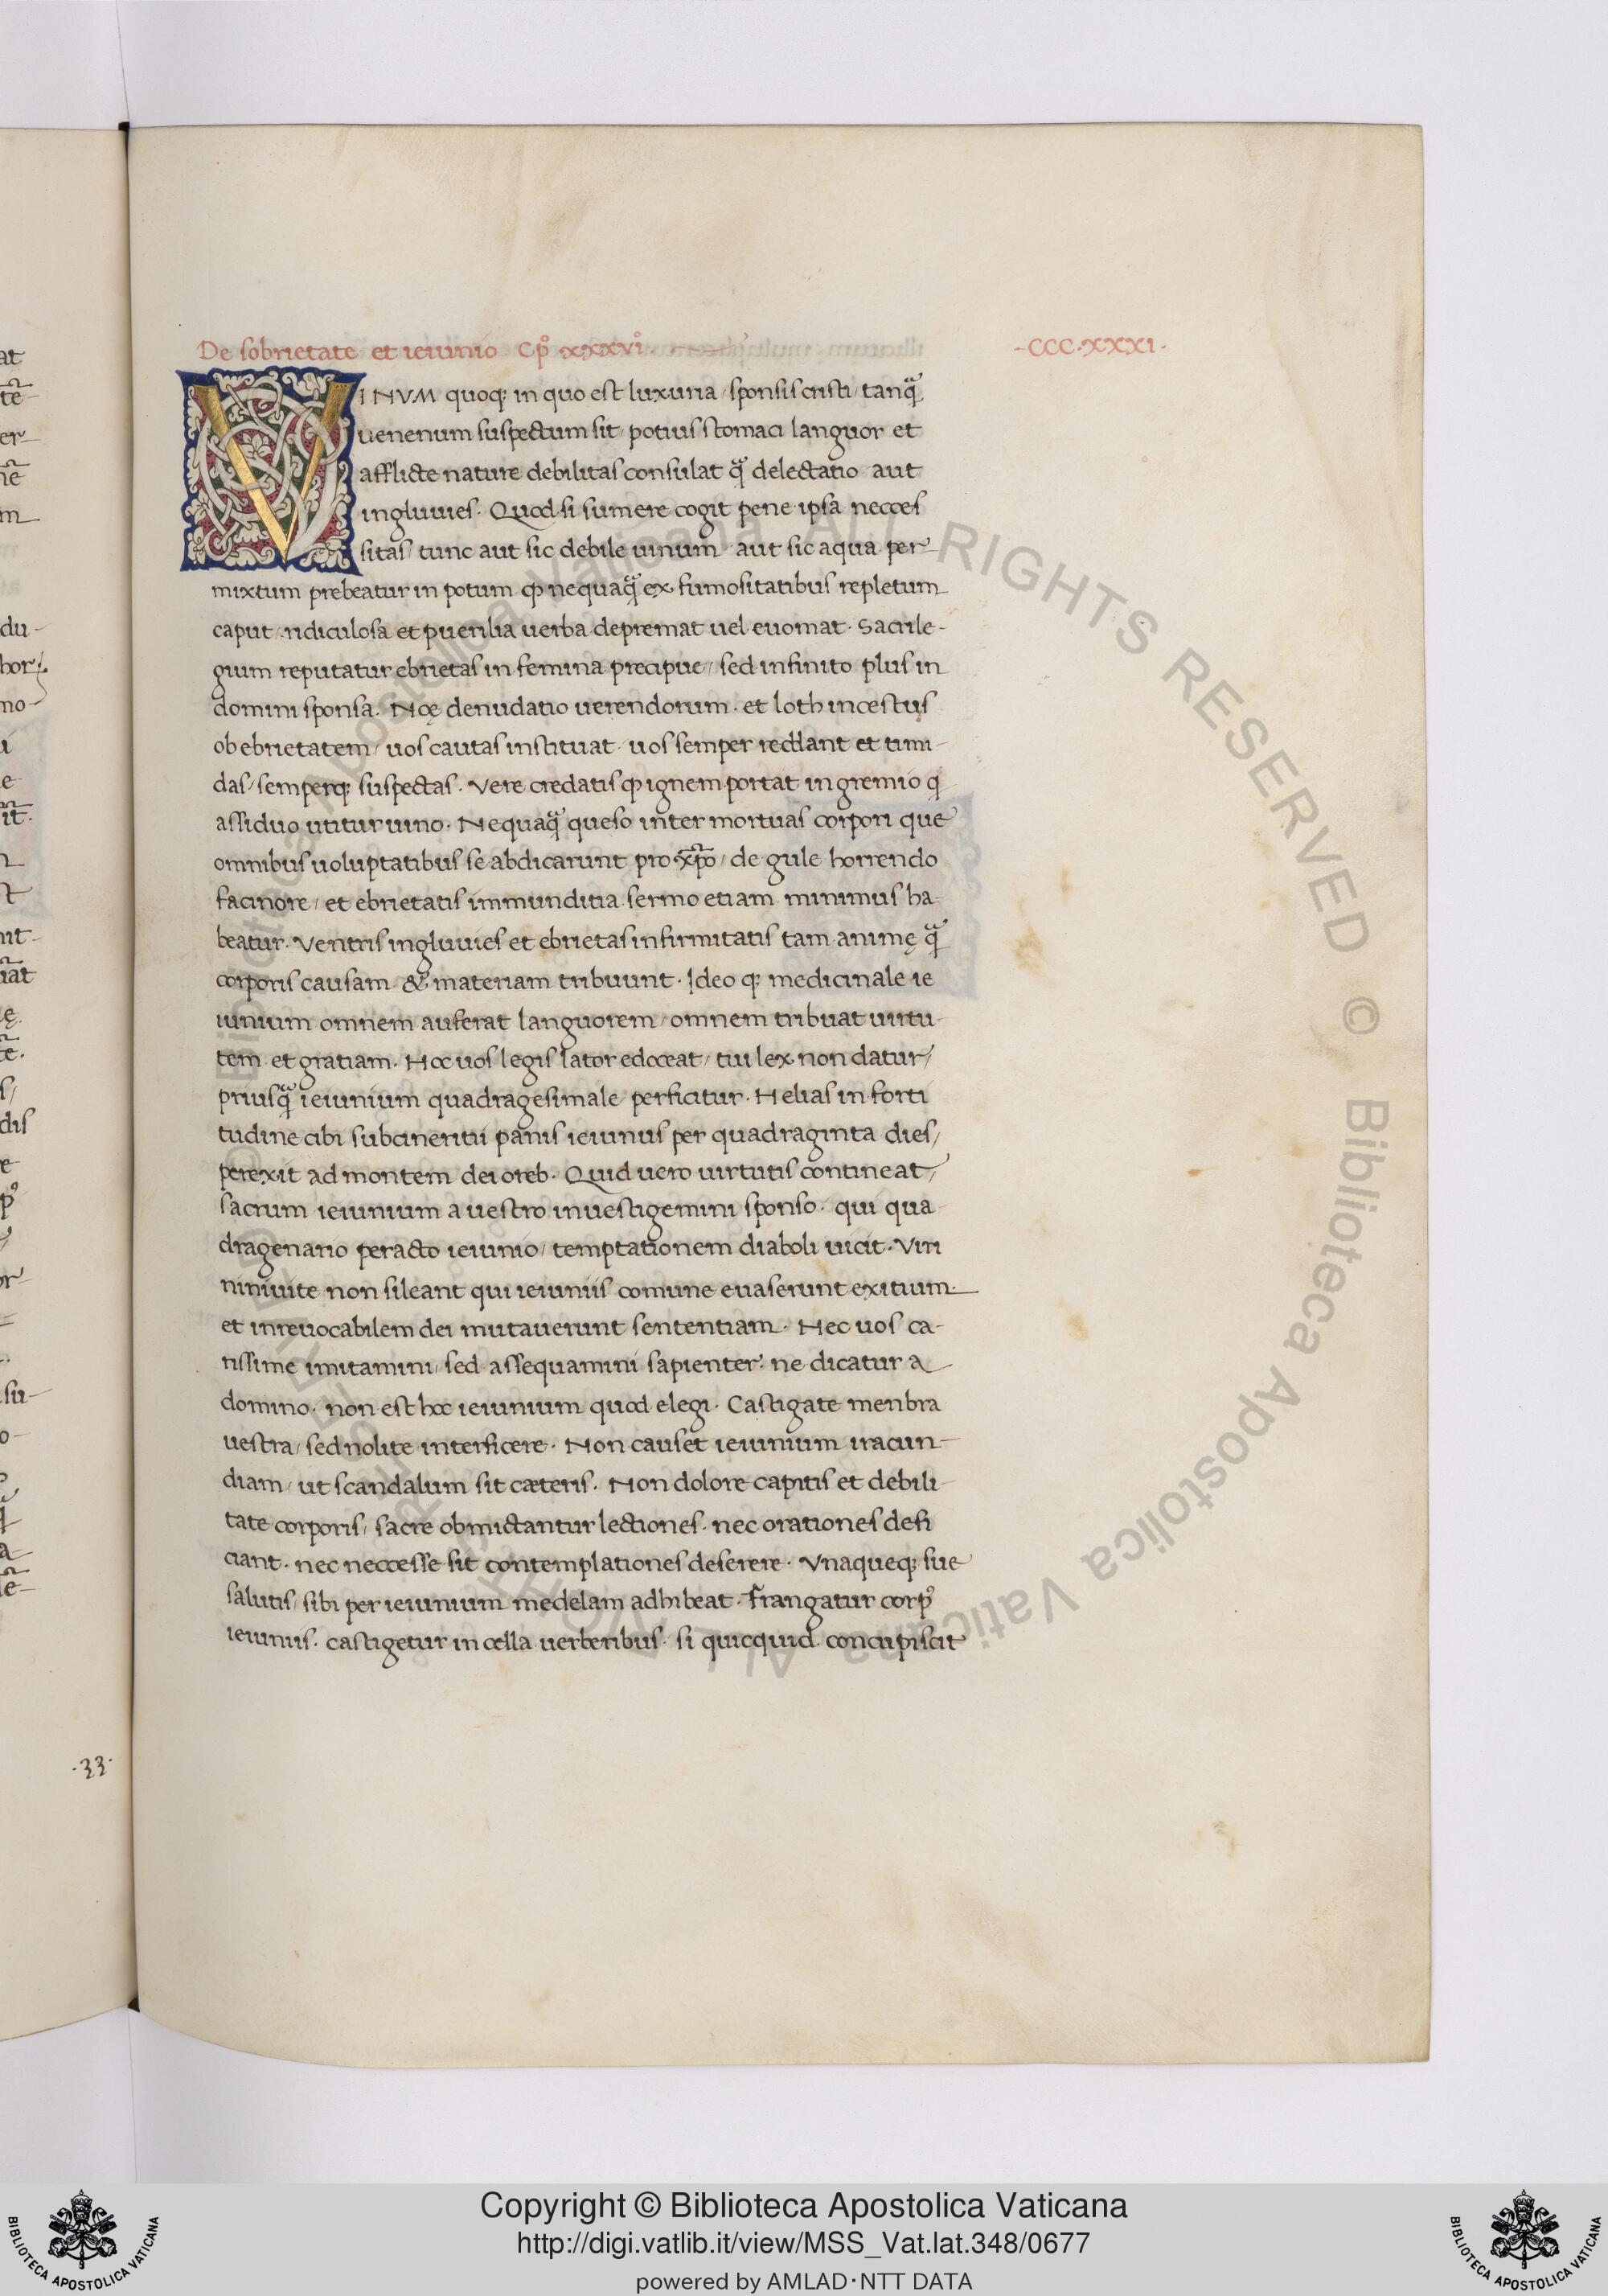 De sobrietate et ieiunio Cpº xxxviº
·CCC·XXXI·
VINVM quoq; in quo est luxuria / sponsis cristi / tanq̃
uenenum suspectum sit / potius stomaci languor et
afflicte nature debilitas consulat q̃ delectatio aut
ingluuies. Quod si sumere cogit pene ipsa necces
sitas / tunc aut sic debile uinum aut sic aqua per
mixtum prebeatur in potum ꝙ nequaq̃ ex fumositatibus repletum
caput / ridiculosa et puerilia uerba depremat uel euomat. Sacrile-
gium reputatur ebrietas in femina precipue / sed infinito plus in
domini sponsa. Noę denudatio uerendorum. et loth incestus
ob ebrietatem / uos cautas instituat. uos semper reddant et timi-
das / semperq; suspectas. Vere credatis ꝙ ignem portat in gremio q
assiduo utitur uino. Nequaq̃ queso inter mortuas corpori que
omnibus uoluptatibus se abdicarunt pro xp̃o / de gule horrendo
facinore / et ebrietatis immunditia sermo etiam minimus ha-
beatur. Ventris ingluuies et ebrietas infirmitatis tam animę q̃
corporis causam & materiam tribuunt. Ideo q; medicinale ie
iunium omnem auferat languorem / omnem tribuat uirtu-
tem et gratiam. Hoc uos legis lator edoceat / cui lex non datur /
priusq̃ ieiunium quadragesimale perficitur. Helias in forti
tudine cibi subcineritii panis ieiunus per quadraginta dies /
perexit ad montem dei oreb. Quid uero uirtutis contineat /
sacrum ieiunium a uestro inuestigemini sponso. qui qua-
dragenario peracto ieiunio / temptationem diaboli uicit. Viri
niniuite non sileant qui ieiuniis comune euaserunt exitium.
et inreuocabilem dei mutauerunt sententiam. Nec uos ca-
rissime imitamini / sed assequamini sapienter. ne dicatur a
domino. non est hoc ieiunium quod elegi. Castigate menbra
uestra / sed nolite interficere. Non causet ieiunium iracun-
diam / ut scandalum sit cæteris. Non dolore capitis et debili-
tate corporis / sacre obmictantur lectiones. nec orationes defi
ciant. nec neccesse sit contemplationes deserere. Vnaqueq; sue
salutis / sibi per ieiunium medelam adhibeat. Frangatur corpꝰ
ieiuniis. castigetur in cella uerberibus. si quicquid concupiscit
·33·
Copyright © Biblioteca Apostolica Vaticana
http://digi.vatlib.it/view/MSS_Vat.lat.348/0677
powered by AMLAD·NTT DATA
BIBLIOTECA APOSTOLICA VATICANA
BIBLIOTECA APOSTOLICA VATICANA